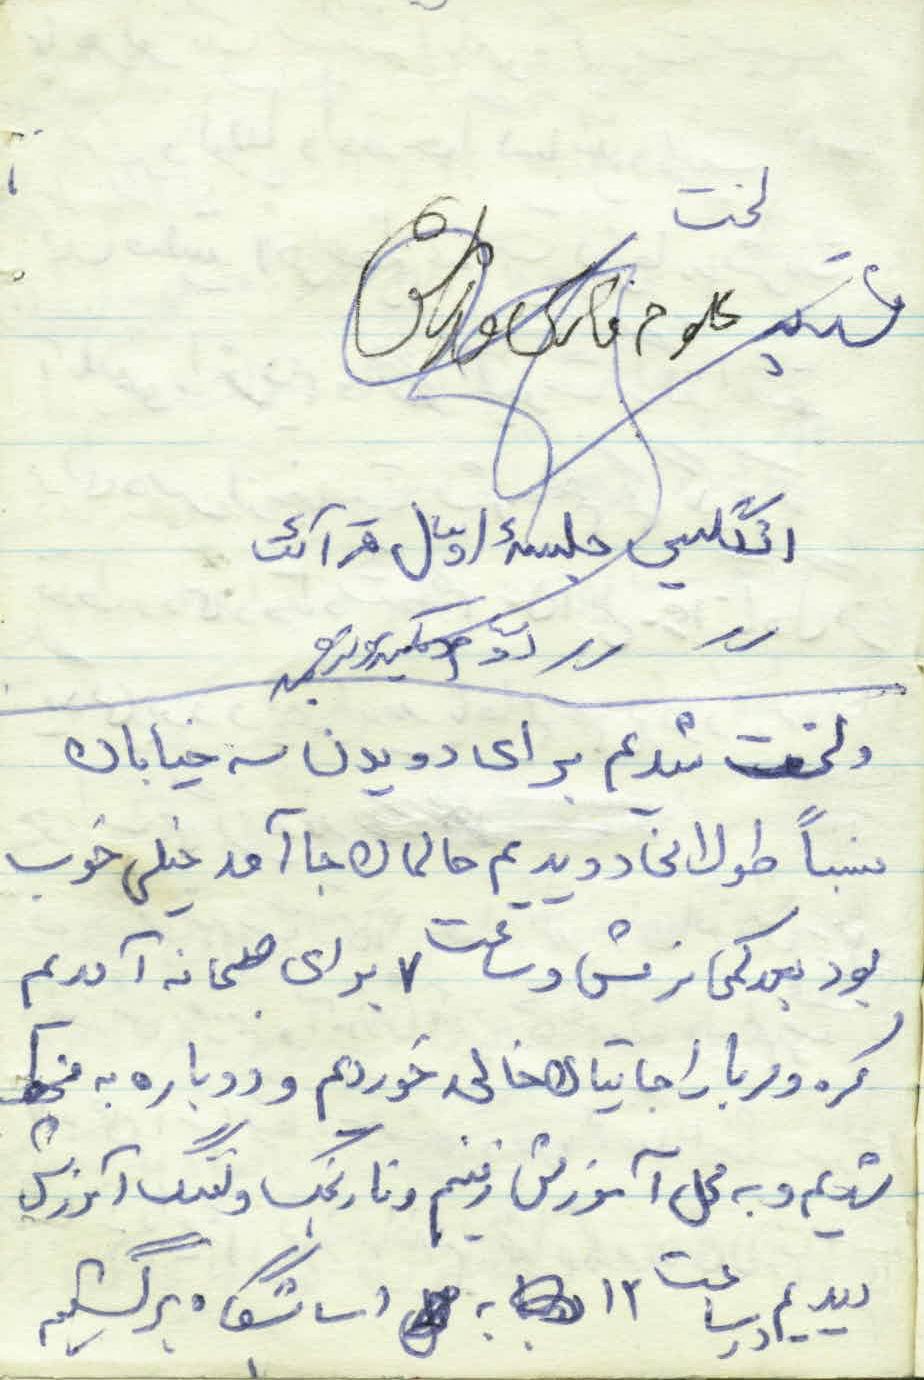 لخت
علوم فارسی ورزش
انگلیسی جلسهٔ اول سال قرآئت
〃 〃 دوم
ولخت شدیم برای دویدن سه خیابان
نسبتاً طولانی دویدیم حالمان جا آمد خیلی خوب
بود بعد کمی نرمش و ساعت ۷ برای صبحانه آمدیم
کره و مربا را جایتان خالی خوردیم و دوباره به خط
شدیم و به محل آموزش رفتیم و نارنجک و تفنگ آموزش
دیدیم در ساعت ۱۲ به آسایشگاه برگشتیم